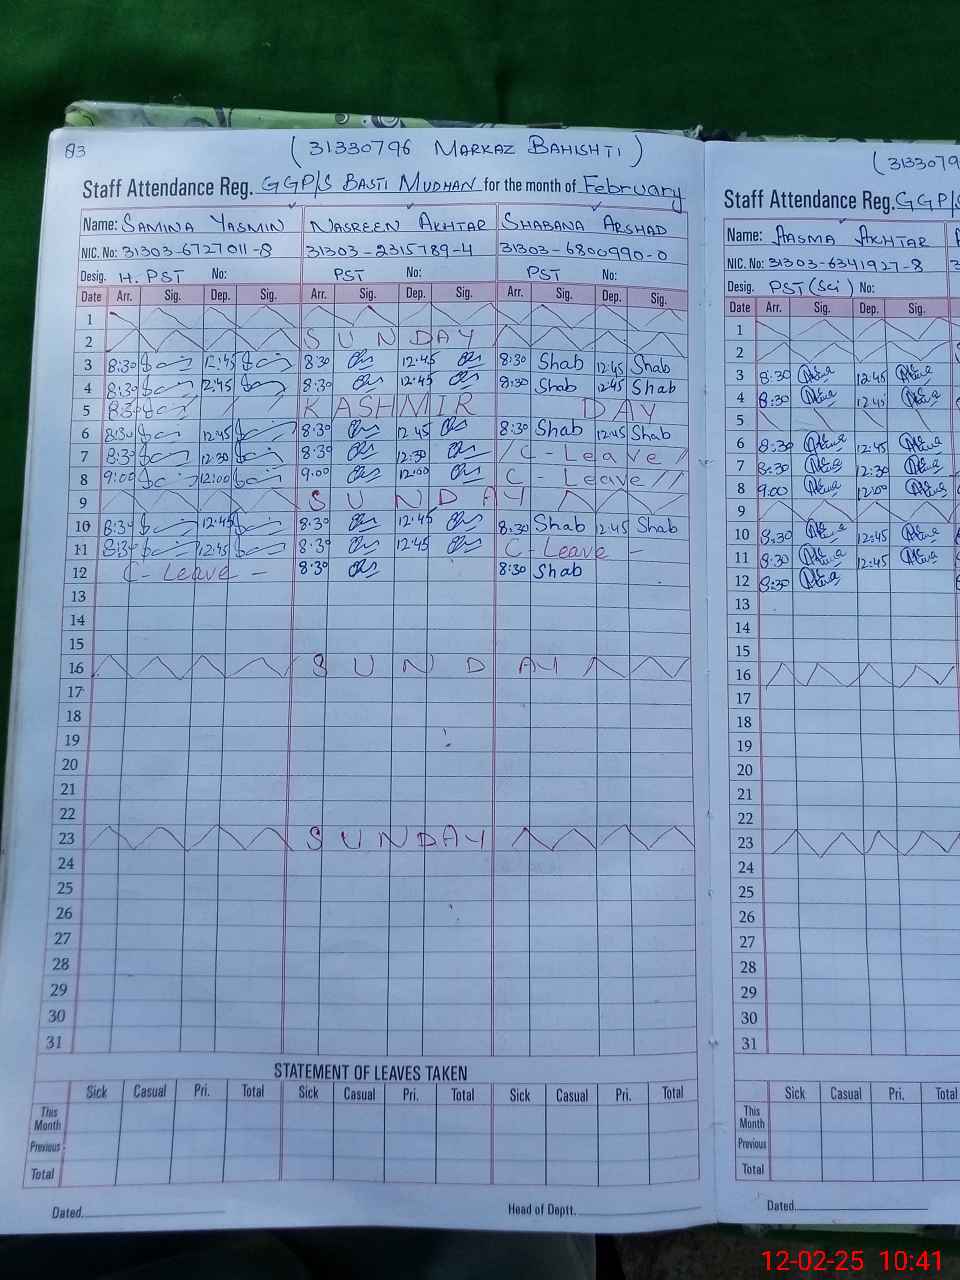 83
( 31330796 MARKAZ BAHISHTI )
Staff Attendance Reg. GGP/S BASTI MUDHAN for the month of February
Name: SAMINA YASMIN NASREEN AKHTAR SHABANA ARSHAD
NIC. No: 31303-6727011-8 31303-2315789-4 31303-6800990-0
Desig. H. PST No: PST No: PST No:
Date Arr. Sig. Dep. Sig. Arr. Sig. Dep. Sig. Arr. Sig. Dep. Sig.
1
2 SUNDAY
3 8:30 12:45 8:30 12:45 8:30 Shab 12:45 Shab
4 8:30 12:45 8:30 12:45 8:30 Shab 12:45 Shab
5 8:30 KASHMIR DAY
6 8:30 12:45 8:30 12:45 8:30 Shab 12:45 Shab
7 8:30 12:30 8:30 12:30 C-Leave
8 9:00 12:00 9:00 12:00 C-Leave
9 SUNDAY
10 8:30 12:45 8:30 12:45 8:30 Shab 12:45 Shab
11 8:30 12:45 8:30 12:45 C-Leave -
12 C-Leave - 8:30 8:30 Shab
13
14
15
16 SUNDAY
17
18
19
20
21
22
23 SUNDAY
24
25
26
27
28
29
30
31
STATEMENT OF LEAVES TAKEN
Sick Casual Pri. Total Sick Casual Pri. Total Sick Casual Pri. Total
This Month
Previous
Total
Dated. Head of Deptt.
(3133079
Staff Attendance Reg. GGP/S
Name: AASMA AKHTAR
NIC. No: 31303-6341927-8
Desig. PST (Sci) No:
Date Arr. Sig. Dep. Sig.
1
2
3 8:30 12:45
4 8:30 12:45
5
6 8:30 12:45
7 8:30 12:30
8 9:00 12:00
9
10 8:30 12:45
11 8:30 12:45
12 8:30
13
14
15
16
17
18
19
20
21
22
23
24
25
26
27
28
29
30
31
Sick Casual Pri. Total
This Month
Previous
Total
Dated.
12-02-25 10:41